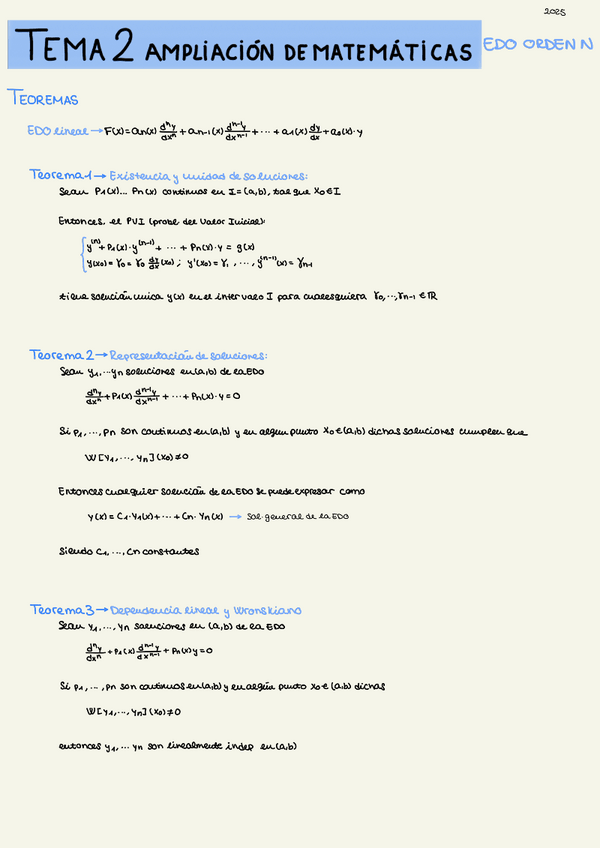 2025
TEMA 2 AMPLIACIÓN DE MATEMÁTICAS EDO ORDEN N
TEOREMAS
EDO lineal → F(x) = an(x) dⁿy/dxⁿ + an-1(x) dⁿ⁻¹y/dxⁿ⁻¹ + ... + a1(x) dy/dx + a0(x)·y
Teorema 1 → Existencia y unidad de soluciones:
Sean P1(x)... Pn(x) continuas en I=(a,b), tal que x0 ∈ I
Entonces, el PVI (probl. del Valor Inicial):
y⁽ⁿ⁾ + P1(x)·y⁽ⁿ⁻¹⁾ + ... + Pn(x)·y = g(x)
y(x0) = γ0 = γ0 dy/dx (x0) ; y'(x0) = γ1 , ..., y⁽ⁿ⁻¹⁾(x) = γn-1
tiene solución unica y(x) en el intervalo I para cualesquiera γ0,...,γn-1 ∈ IR
Teorema 2 → Representación de soluciones:
Sean y1,...yn soluciones en (a,b) de la EDO
dⁿy/dxⁿ + P1(x) dⁿ⁻¹y/dxⁿ⁻¹ + ... + Pn(x)·y = 0
Si P1, ..., Pn son continuos en (a,b) y en algun punto x0 ∈ (a,b) dichas soluciones cumplen que
W[y1, ..., yn](x0) ≠ 0
Entonces cualquier solución de la EDO se puede expresar como
y(x) = C1·y1(x) + ... + Cn·yn(x) → Sol. general de la EDO
Siendo C1, ..., Cn constantes
Teorema 3 → Dependencia lineal y Wronskiano
Sean y1, ..., yn soluciones en (a,b) de la EDO
dⁿy/dxⁿ + P1(x) dⁿ⁻¹y/dxⁿ⁻¹ + Pn(x)y = 0
Si P1, ..., Pn son continuos en (a,b) y en algún punto x0 ∈ (a,b) dichas
W[y1, ..., yn](x0) ≠ 0
entonces y1, ... yn son linealmente indep en (a,b)